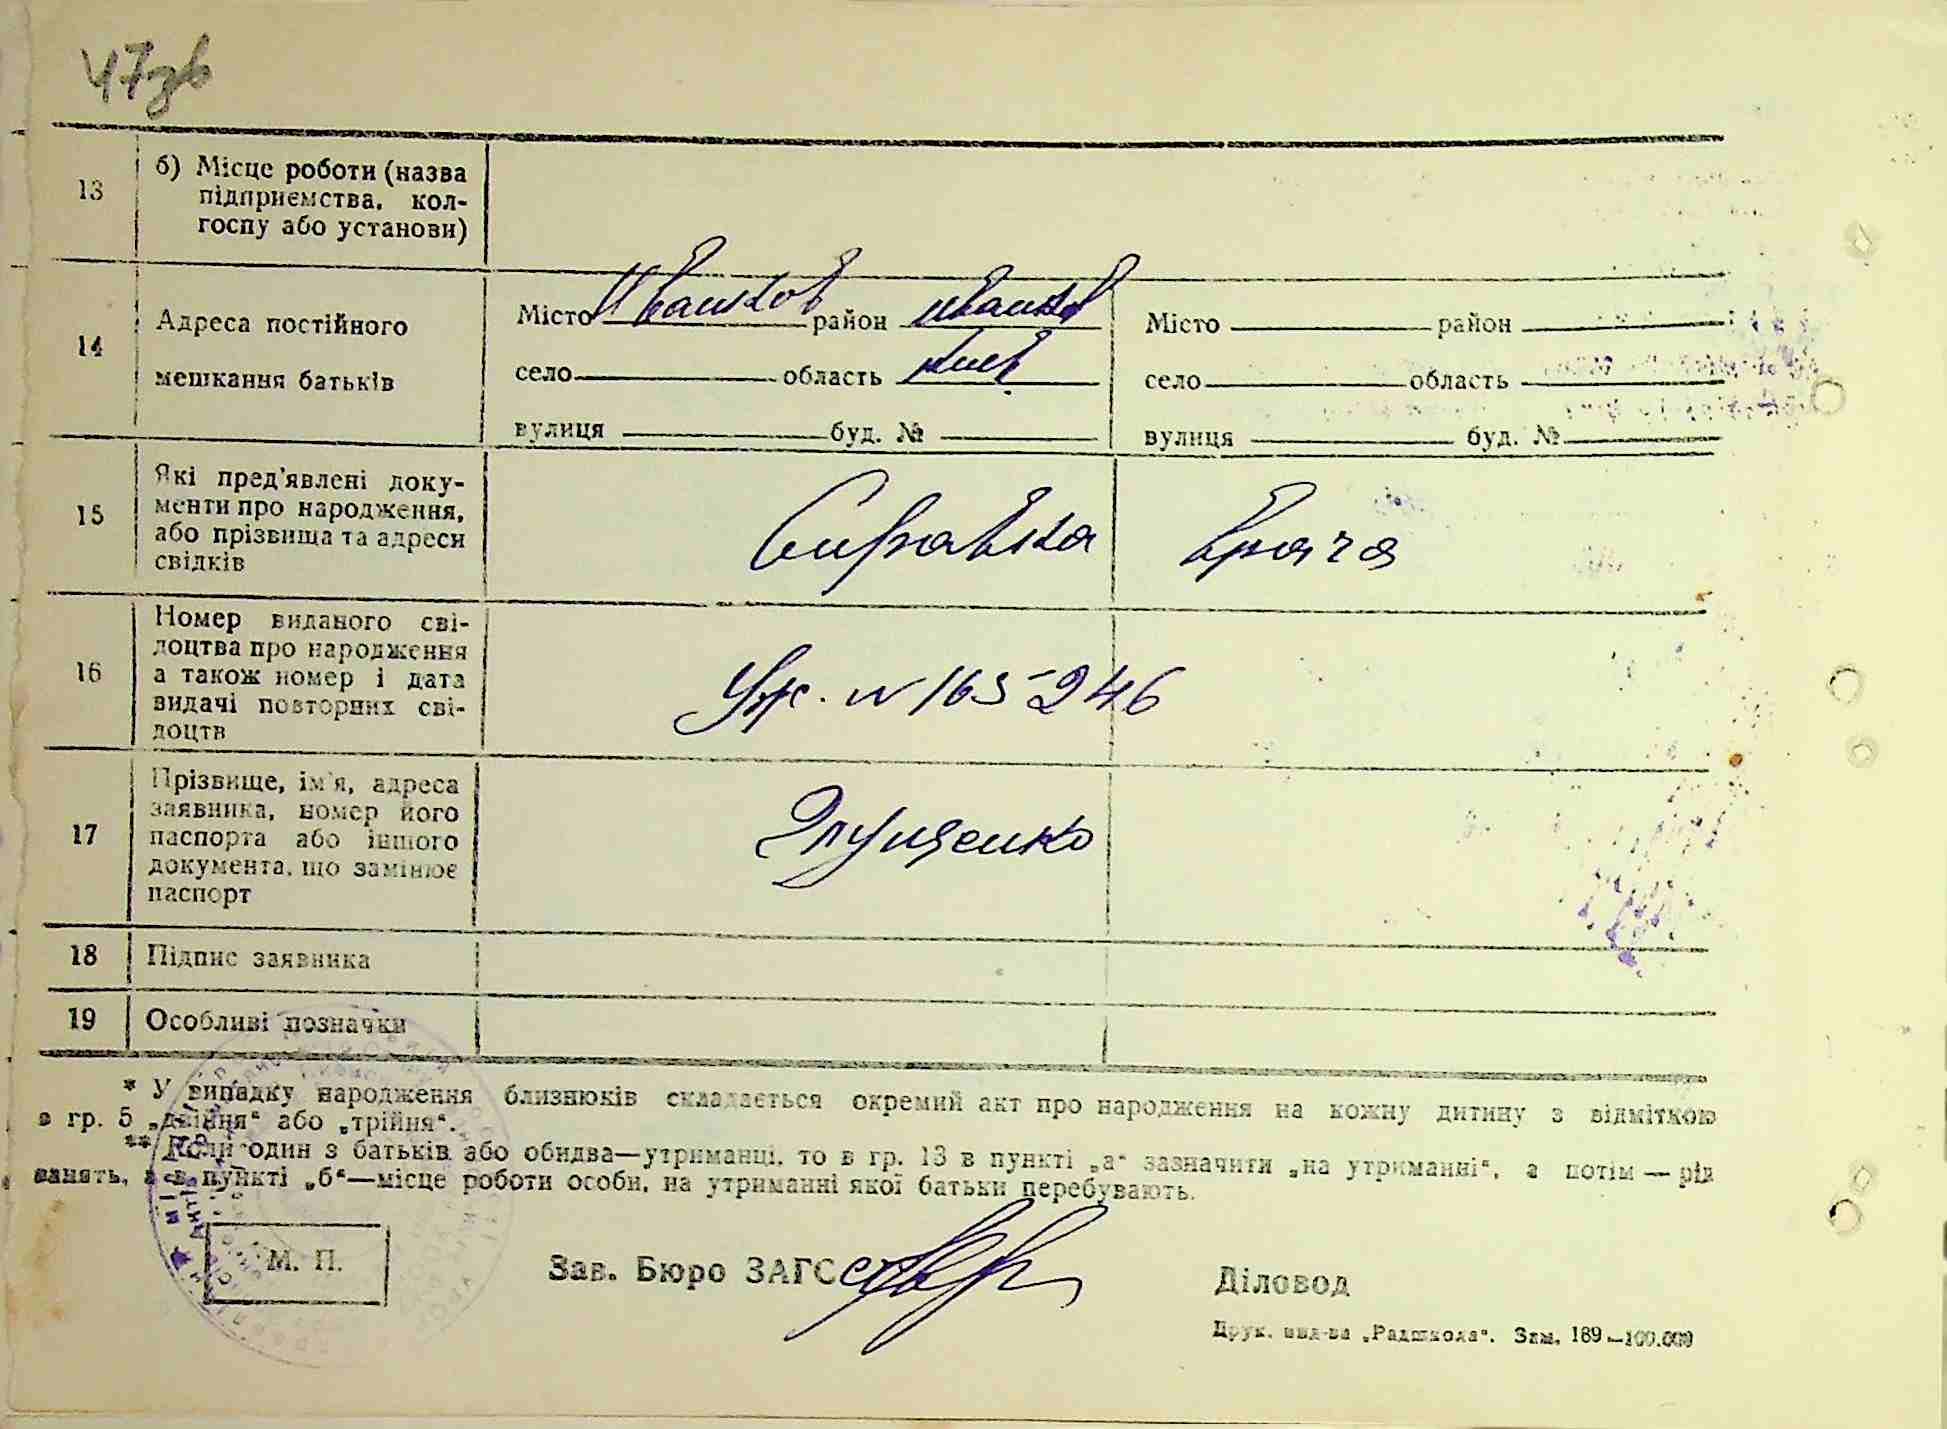 47зв
13 б) Місце роботи (назва
підприємства, кол-
госпу або установи)
14 Адреса постійного
мешкання батьків
Місто Иванков район Иванков
село область Киев
вулиця буд. №
Місто район
село область
вулиця буд. №
15 Які пред'явлені доку-
менти про народження,
або прізвища та адреси
свідків
Справка врача
16 Номер виданого сві-
доцтва про народження
а також номер і дата
видачі повторних сві-
доцтв
УЖ. N 165246
17 Прізвище, ім'я, адреса
заявника, номер його
паспорта або іншого
документа, що замінює
паспорт
Глущенко
18 Підпис заявника
19 Особливі позначки
* У випадку народження близнюків складається окремий акт про народження на кожну дитину з відміткою
в гр. 5 „двійня“ або „трійня“.
** Коли один з батьків або обидва—утриманці, то в гр. 13 в пункті „а“ зазначити „на утриманні“, а потім — рід
занять, а в пункті „б“—місце роботи особи, на утриманні якої батьки перебувають.
М. П.
Зав. Бюро ЗАГС
Діловод
Друк. вид-ва „Радшкола“. Зам. 189—100.000